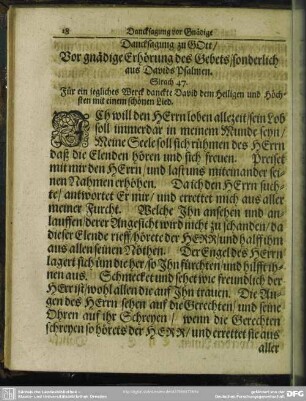 18 Dancksagung vor Gnädige
Dancksagung zu GOtt/
Vor gnädige Erhörung des Gebets/ sonderlich
aus Davids Psalmen.
Sirach 47.
Für ein jegliches Werck danckte David dem Heiligen und Höch-
sten mit einem schönen Lied.
ICh will den HErrn loben allezeit/ sein Lob
soll immerdar in meinem Munde seyn/
Meine Seele soll sich rühmen des HErrn
daß die Elenden hören und sich freuen. Preiset
mit mir den HErrn/ und last uns miteinander sei-
nen Nahmen erhöhen. Da ich den HErrn such-
te/ antwortet Er mir/ und errettet mich aus aller
meiner Furcht. Welche Ihn ansehen und an-
lauffen/ derer Angesicht wird nicht zu schanden/ da
dieser Elende rieff/ hörete der HERR/ und halff ihm
aus allen seinen Nöthen. Der Engel des HErrn
lagert sich üm die her/ so Ihn fürchten/ und hilfft ih-
nen aus. Schmecket und sehet wie freundlich der
HErr ist/ wohl allen die auf Ihn trauen. Die Au-
gen des HErrn sehen auf die Gerechten/ und seine
Ohren auf ihr Schreyen/ wenn die Gerechten
schreyen so hörets der HERR/ und errettet sie aus
aller